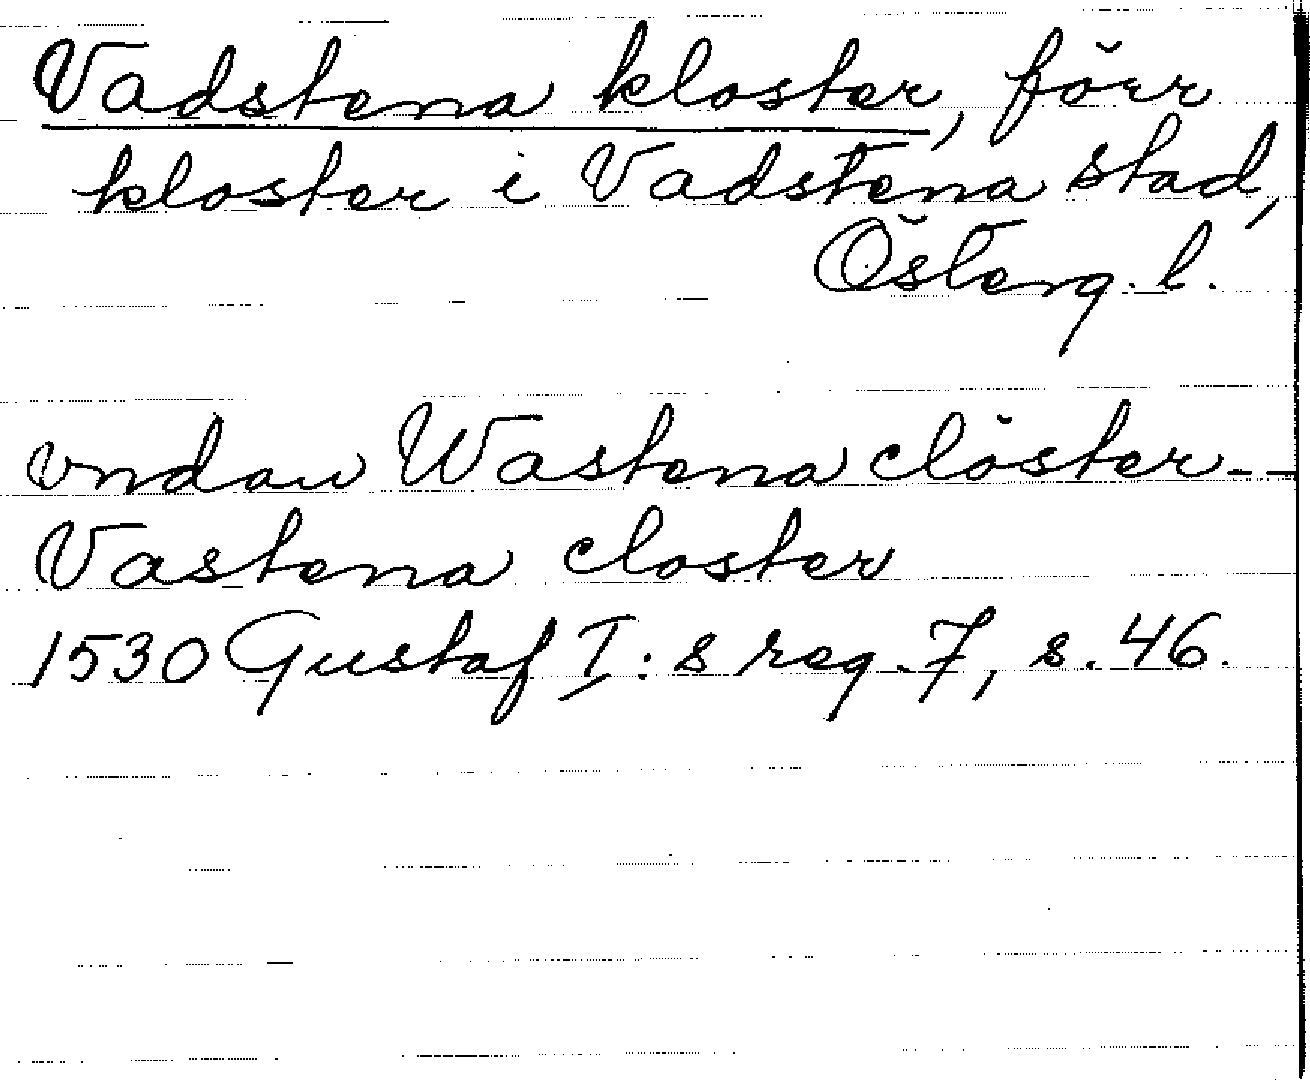 Vadstena kloster, förr
kloster i Vadstena stad,
Österg. l.
vndan Wastena clöster--
Vastena closter
1530 Gustaf I:s reg. 7, s. 46.